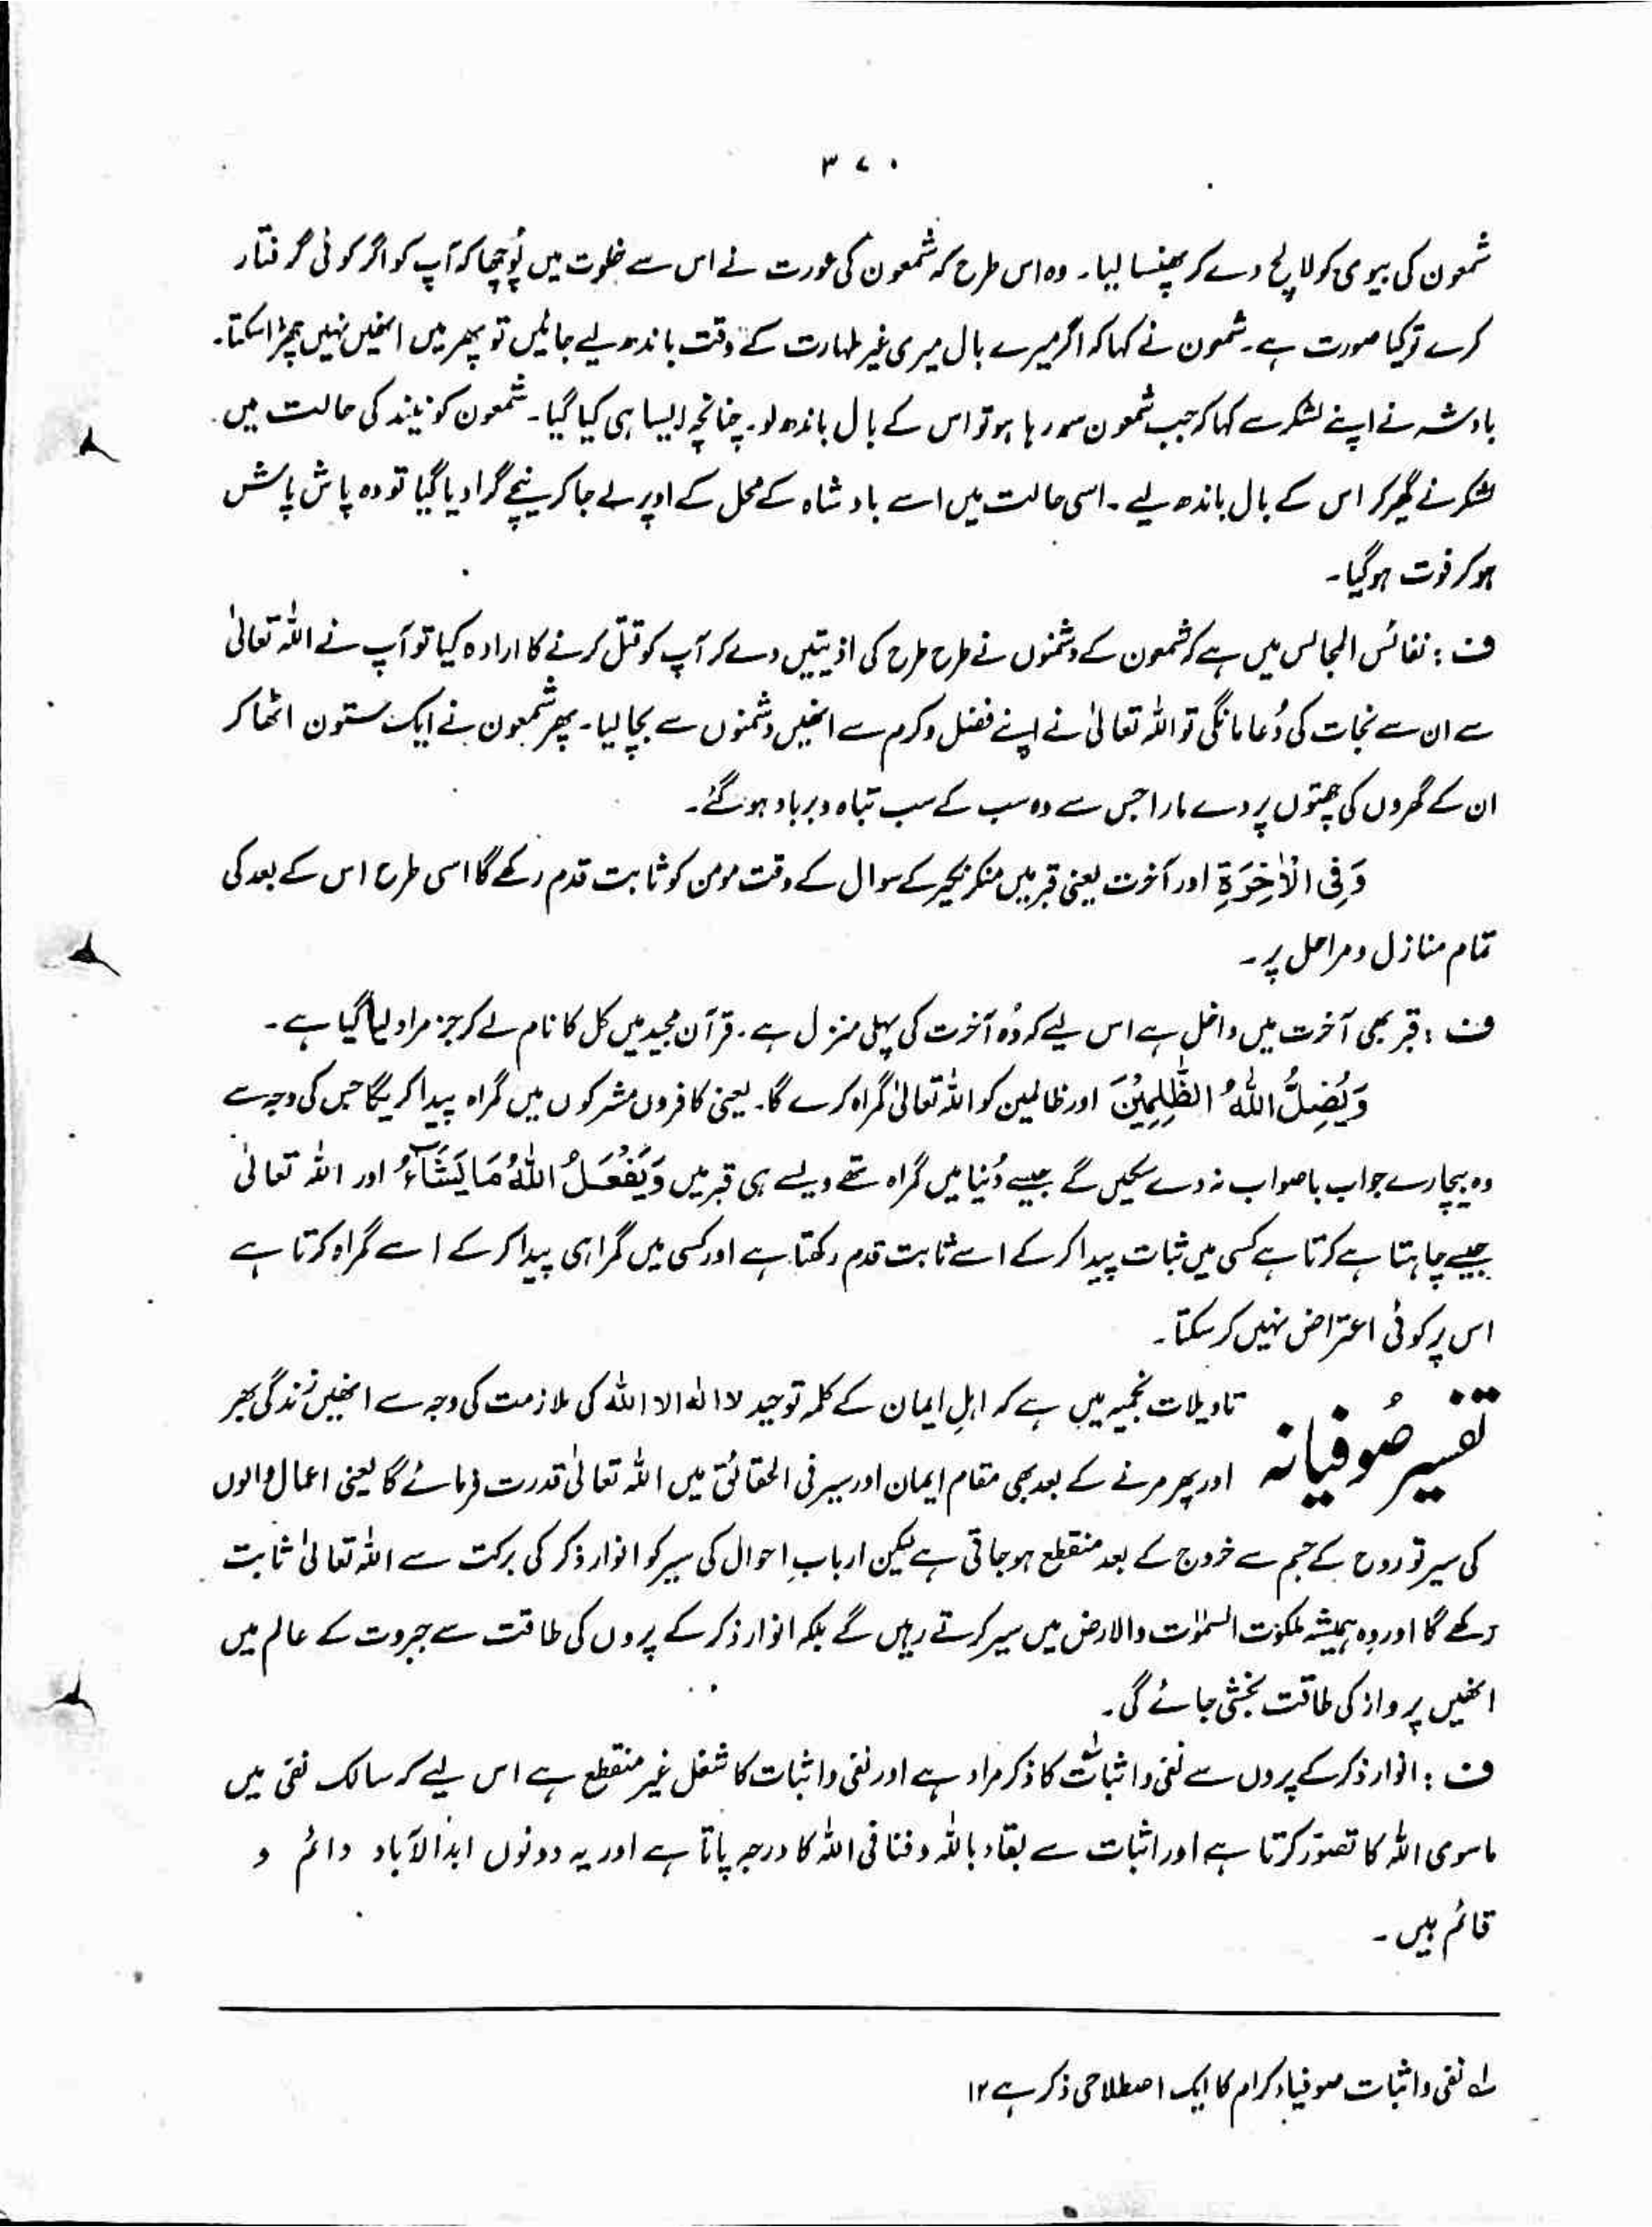 ۳۷۰
شمعون کی بیوی کو لالچ دے کر پھنسا لیا۔ وہ اس طرح کہ شمعون کی عورت نے اس سے خلوت میں پُوچھا کہ آپ کو اگر کوئی گرفتار
کرے تو کیا صورت ہے۔ شمعون نے کہا کہ اگر میرے بال میری غیر طہارت کے وقت باندھ لیے جائیں تو پھر میں انھیں نہیں چھڑا سکتا۔
بادشہ نے اپنے لشکر سے کہا کہ جب شمعون سو رہا ہو تو اس کے بال باندھ لو۔ چنانچہ ایسا ہی کیا گیا۔ شمعون کو نیند کی حالت میں
لشکر نے گھیر کر اس کے بال باندھ لیے۔ اسی حالت میں اسے بادشاہ کے محل کے اوپر لے جا کر نیچے گرا دیا گیا تو وہ پاش پاش
ہو کر فوت ہو گیا۔
ف : نفائس المجالس میں ہے کہ شمعون کے دشمنوں نے طرح طرح کی اذیتیں دے کر آپ کو قتل کرنے کا ارادہ کیا تو آپ نے اللہ تعالیٰ
سے ان سے نجات کی دُعا مانگی تو اللہ تعالیٰ نے اپنے فضل و کرم سے انھیں دشمنوں سے بچا لیا۔ پھر شمعون نے ایک ستون اٹھا کر
ان کے گھروں کی چھتوں پر دے مارا جس سے وہ سب کے سب تباہ و برباد ہو گئے۔
وَفِی الْاٰخِرَۃِ اور آخرت یعنی قبر میں منکر نکیر کے سوال کے وقت مومن کو ثابت قدم رکھے گا اسی طرح اس کے بعد کی
تمام منازل و مراحل پر۔
ف : قبر بھی آخرت میں داخل ہے اس لیے کہ وُہ آخرت کی پہلی منزل ہے۔ قرآن مجید میں کل کا نام لے کر جز مراد لیا گیا ہے۔
وَیُضِلُّ اللّٰہُ الظّٰلِمِیْنَ اور ظالمین کو اللہ تعالیٰ گمراہ کرے گا۔ یعنی کافروں مشرکوں میں گمراہ پیدا کریگا جس کی وجہ سے
وہ بیچارے جواب باصواب نہ دے سکیں گے جیسے دُنیا میں گمراہ تھے ویسے ہی قبر میں وَیَفْعَلُ اللّٰہُ مَا یَشَآءُ اور اللہ تعالیٰ
جیسے چاہتا ہے کرتا ہے کسی میں ثبات پیدا کر کے اسے ثابت قدم رکھتا ہے اور کسی میں گمراہی پیدا کر کے اسے گمراہ کرتا ہے
اس پر کوئی اعتراض نہیں کر سکتا۔
تفسیر صُوفیانہ
تاویلات نجمیہ میں ہے کہ اہلِ ایمان کے کلمہ توحید لا الٰہ الا اللہ کی ملازمت کی وجہ سے انھیں زندگی بھر
اور پھر مرنے کے بعد بھی مقام ایمان اور سیر فی الحقائق میں اللہ تعالیٰ قدرت فرمائے گا یعنی اعمال والوں
کی سیر تو روح کے جسم سے خروج کے بعد منقطع ہو جاتی ہے لیکن اربابِ احوال کی سیر کو انوار ذکر کی برکت سے اللہ تعالیٰ ثابت
رکھے گا اور وہ ہمیشہ ملکوت السمٰوٰت والارض میں سیر کرتے رہیں گے بلکہ انوار ذکر کے پروں کی طاقت سے جبروت کے عالم میں
انھیں پرواز کی طاقت بخشی جائے گی۔
ف : انوار ذکر کے پروں سے نفی و اثبات ؂۱ کا ذکر مراد ہے اور نفی و اثبات کا شغل غیر منقطع ہے اس لیے کہ سالک نفی میں
ماسوی اللہ کا تصوّر کرتا ہے اور اثبات سے بقاء باللہ و فنا فی اللہ کا درجہ پاتا ہے اور یہ دونوں ابدالآباد دائم و
قائم ہیں۔
؂۱ نفی و اثبات صوفیاء کرام کا ایک اصطلاحی ذکر ہے ۱۲